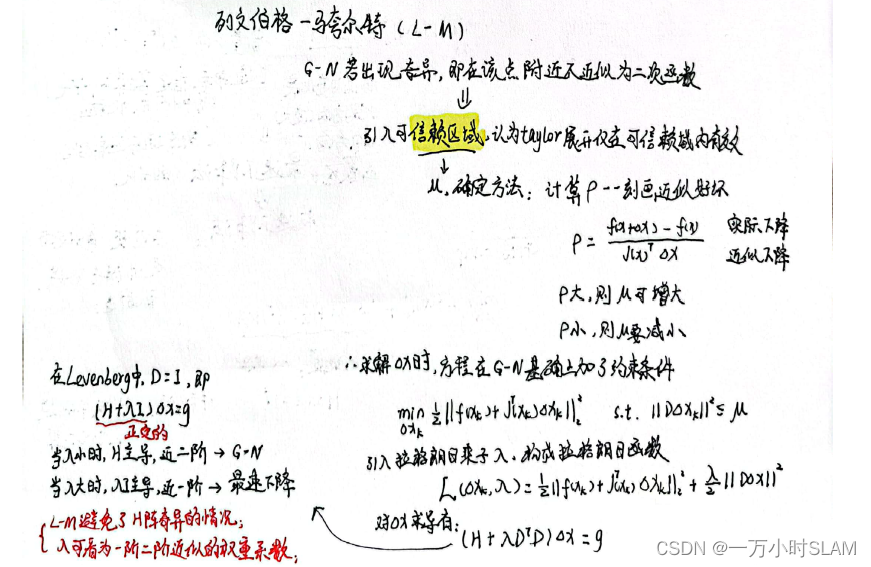 列文伯格-马夸尔特(L-M)
G-N若出现奇异,即在该点附近不近似为二次函数
⇓
引入可信赖区域,认为taylor展开仅在可信赖域内有效
↓
μ,确定方法:计算ρ--刻画近似好坏
ρ = (f(x+Δx) - f(x)) / (J(x)ᵀ Δx) 实际下降 / 近似下降
ρ大,则μ可增大
ρ小,则μ要减小
∴求解Δx时,方程在G-N基础上加了约束条件
min_{Δx_k} ½||f(x_k)+Jᵀ(x_k)Δx_k||₂² s.t. ||DΔx_k||² ≤ μ
引入拉格朗日乘子λ,构成拉格朗日函数
L(Δx_k, λ) = ½||f(x_k)+Jᵀ(x_k)Δx_k||₂² + λ/2 ||DΔx||²
对Δx求导有:
(H+λDᵀD)Δx = g
在Levenberg中,D=I,即
(H+λI)Δx=g
正定的
当λ小时,H主导,近二阶→G-N
当λ大时,λI主导,近一阶→最速下降
L-M避免了H阵奇异的情况;
λ可看为一阶二阶近似的权重系数;
CSDN @一万小时SLAM